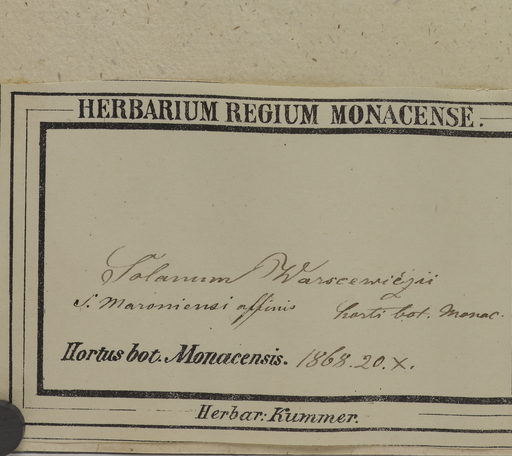 HERBARIUM REGIUM MONACENSE.
Solanum Warscewiczii
S. Maroniensi affinis horti bot. Monac.
Hortus bot. Monacensis. 1868. 20. X.
Herbar: Kummer.